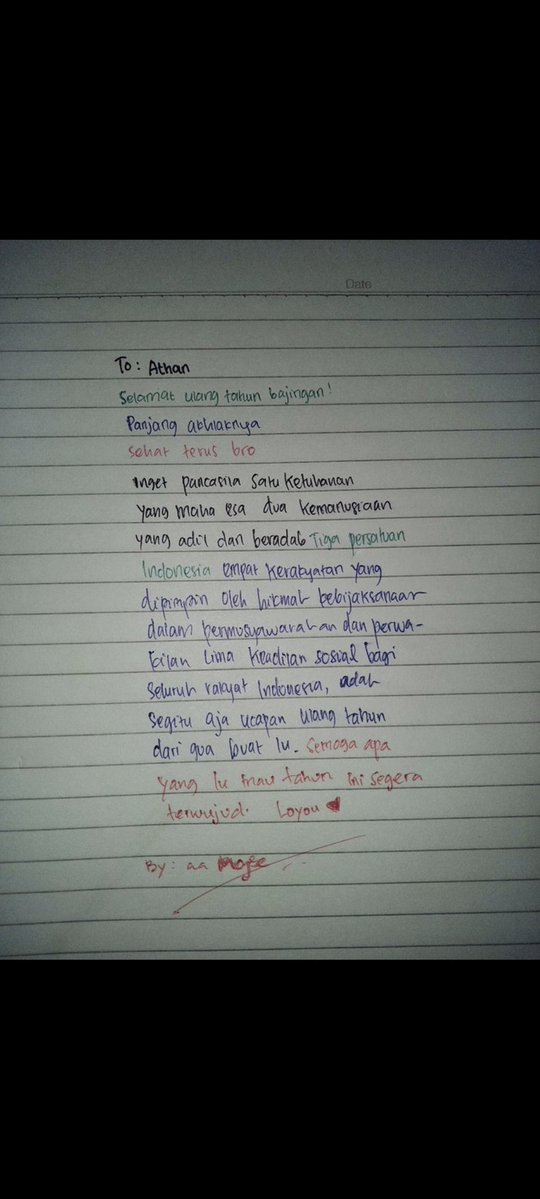 Date
To: Athan
Selamat ulang tahun bajingan!
Panjang akhlaknya
Sehat terus bro
inget pancasila satu ketuhanan
yang maha esa dua kemanusiaan
yang adil dan beradab Tiga persatuan
Indonesia empat kerakyatan yang
dipimpin oleh hikmah kebijaksanaan
dalam permusyawarahan dan perwa-
kilan lima keadilan sosial bagi
seluruh rakyat Indonesia, udah
segitu aja ucapan ulang tahun
dari gua buat lu. Semoga apa
yang lu mau tahun ini segera
terwujud. Loyou
By: aa